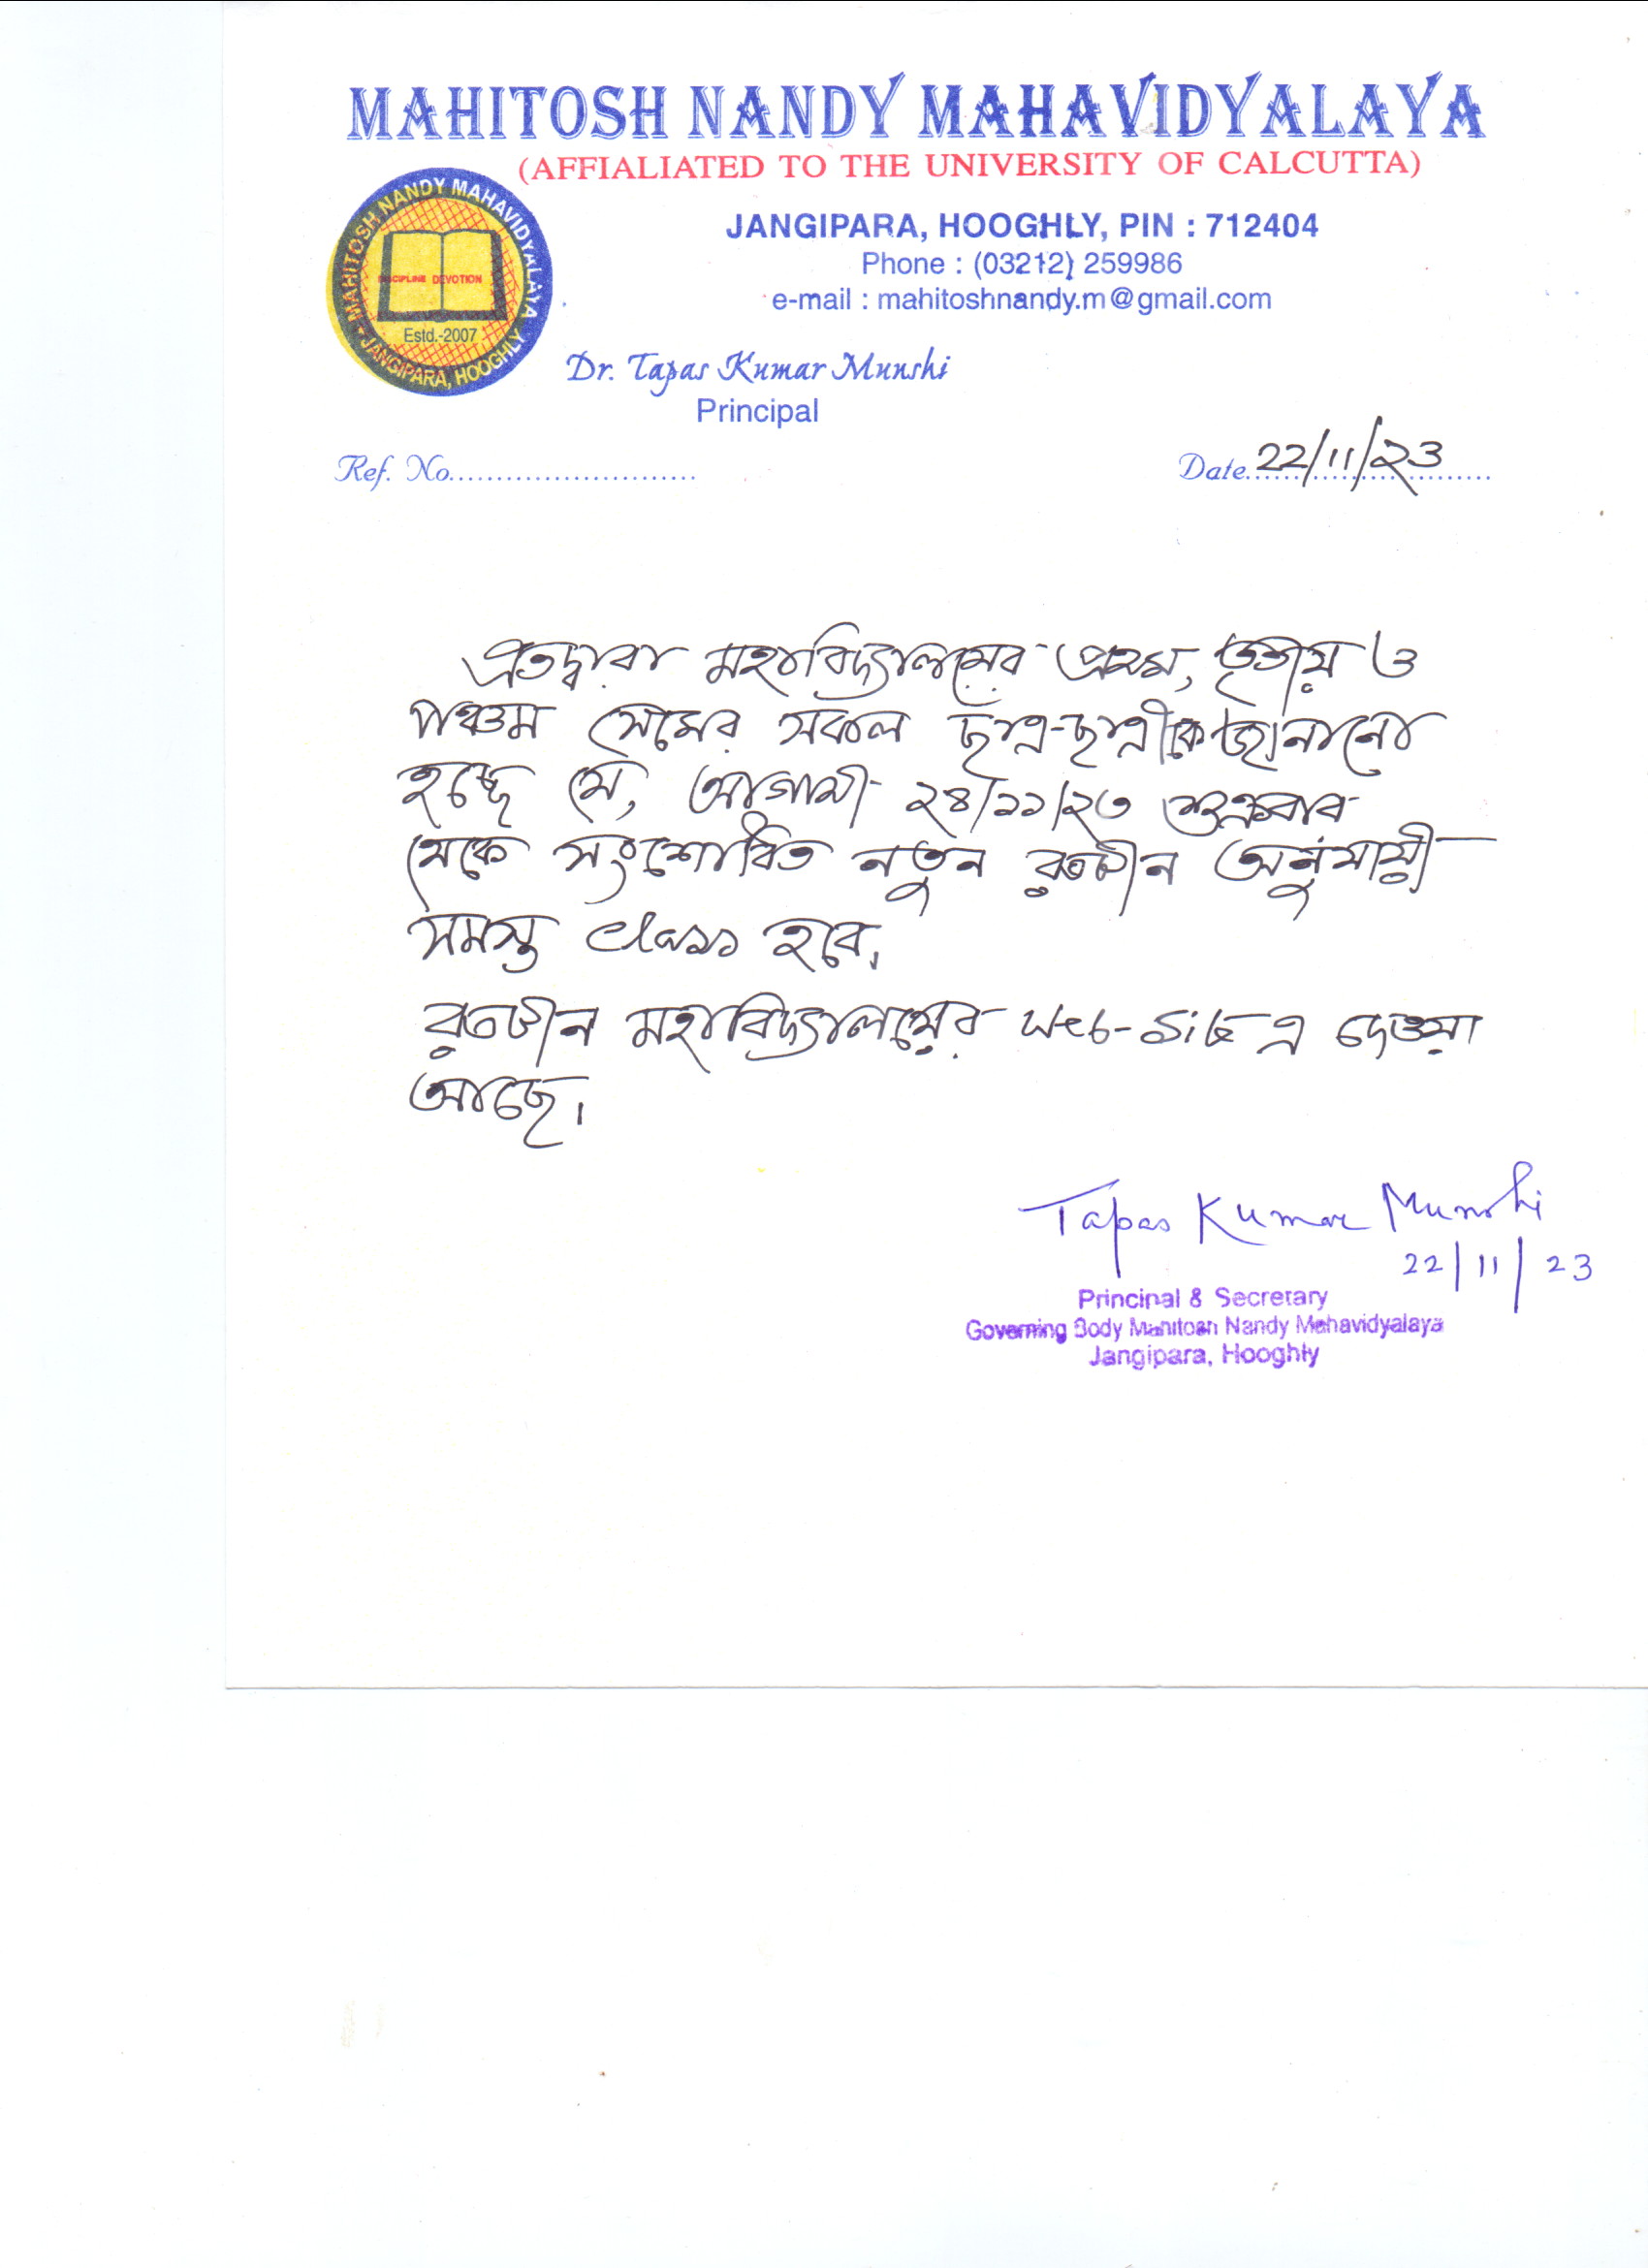 MAHITOSH NANDY MAHAVIDYALAYA
(AFFIALIATED TO THE UNIVERSITY OF CALCUTTA)
MAHITOSH NANDY MAHAVIDYALAYA
DISCIPLINE DEVOTION
Estd.-2007
JANGIPARA, HOOGHLY
JANGIPARA, HOOGHLY, PIN : 712404
Phone : (03212) 259986
e-mail : mahitoshnandy.m@gmail.com
Dr. Tapas Kumar Munshi
Principal
Ref. No..........................
Date 22/11/23
এতদ্বারা মহাবিদ্যালয়ের প্রথম, তৃতীয় ও
পঞ্চম সেমের সকল ছাত্র-ছাত্রীকে জানানো
হচ্ছে যে, আগামী ২৪/১১/২৩ শুক্রবার
থেকে সংশোধিত নতুন রুটীন অনুযায়ী
সমস্ত class হবে।
রুটীন মহাবিদ্যালয়ের Web-Site এ দেওয়া
আছে।
Tapas Kumar Munshi
22/11/23
Principal & Secretary
Governing Body Mahitosh Nandy Mahavidyalaya
Jangipara, Hooghly